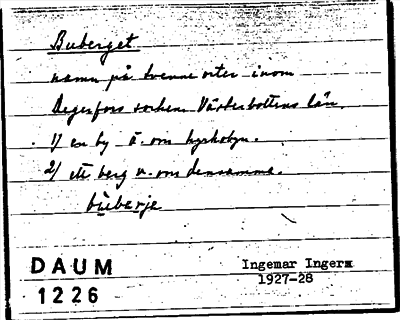 Buberget
namn på tvenne orter inom
Degerfors socken Västerbottens län.
1) en by ö. om kyrkobyn.
2) ett berg v. om densamma.
bùberje
DAUM
1226
Ingemar Ingers
1927-28